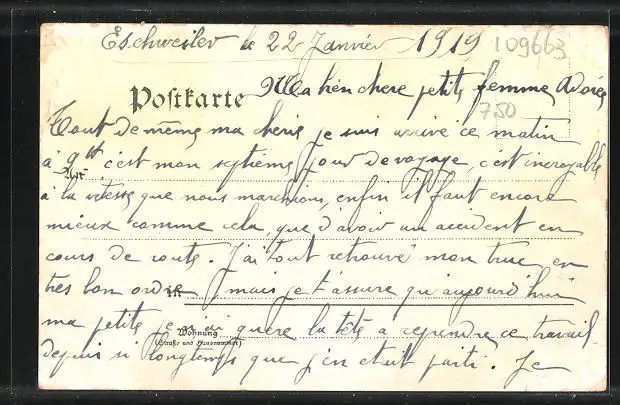 Eschweiler le 22 Janvier 1919
109663
Postkarte
Ma bien chere petite femme Adorée
750
Tout de même ma cherie je suis arrivé ce matin
à 9h c'est mon septième jour de voyage, c'est incroyable
An
à la vitesse que nous marchions, enfin il faut encore
mieux comme cela, que d'avoir un accident en
cours de route. J'ai tout retrouvé mon truc en
tres bon ordre, mais je t'assure qu'aujourd'hui
in
ma petite j'en ai guère la tête a reprendre ce travail
Wohnung
(Straße und Hausnummer)
depuis si longtemps que j'en etait parti. Je